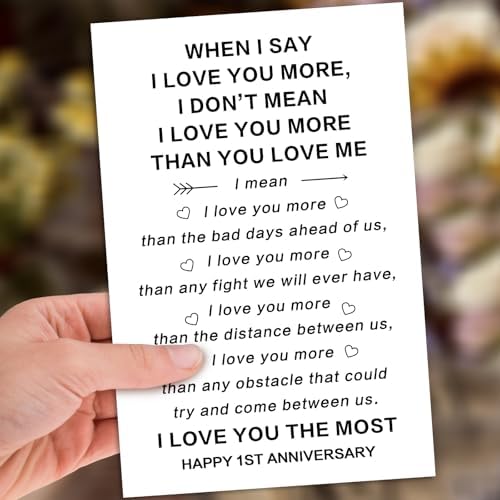 WHEN I SAY
I LOVE YOU MORE,
I DON'T MEAN
I LOVE YOU MORE
THAN YOU LOVE ME
I mean
I love you more
than the bad days ahead of us,
I love you more
than any fight we will ever have,
I love you more
than the distance between us,
I love you more
than any obstacle that could
try and come between us.
I LOVE YOU THE MOST
HAPPY 1ST ANNIVERSARY